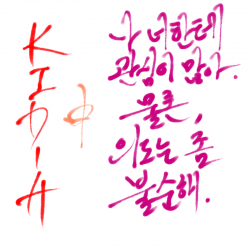 나 너한테
관심이 많아.
물론,
의도는 좀
불순해.